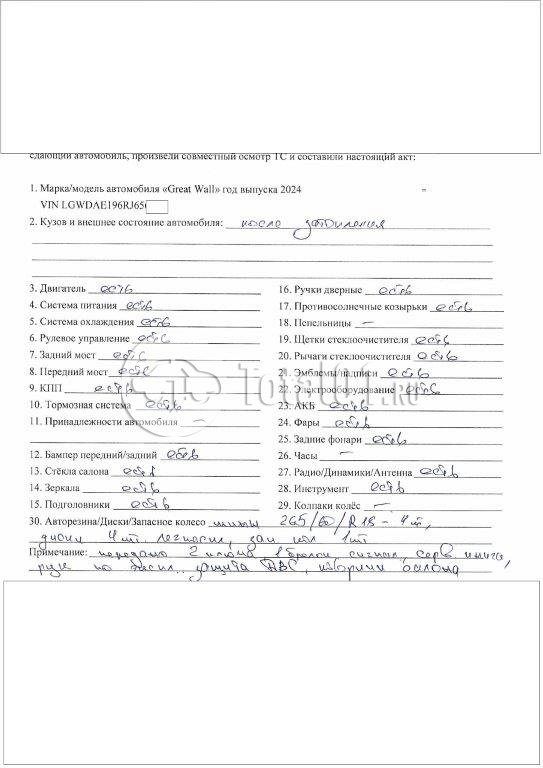 сдающий автомобиль, произвели совместный осмотр ТС и составили настоящий акт:
1. Марка/модель автомобиля «Great Wall» год выпуска 2024
VIN LGWDAE196RJ65
2. Кузов и внешнее состояние автомобиля: после затопления
3. Двигатель есть
4. Система питания есть
5. Система охлаждения есть
6. Рулевое управление есть
7. Задний мост есть
8. Передний мост есть
9. КПП есть
10. Тормозная система есть
11. Принадлежности автомобиля –
12. Бампер передний/задний есть
13. Стёкла салона есть
14. Зеркала есть
15. Подголовники есть
16. Ручки дверные есть
17. Противосолнечные козырьки есть
18. Пепельницы –
19. Щетки стеклоочистителя есть
20. Рычаги стеклоочистителя есть
21. Эмблемы/надписи есть
22. Электрооборудование есть
23. АКБ есть
24. Фары есть
25. Задние фонари есть
26. Часы –
27. Радио/Динамики/Антенна есть
28. Инструмент есть
29. Колпаки колёс –
30. Авторезина/Диски/Запасное колесо шины 265/60/R18 - 4 шт,
диски 4 шт. легкоспл, зап кол 1 шт
Примечание: передано 2 ключа 1 брелок сигнал, серв книга,
рук по экспл., защита ДВС, коврики салона